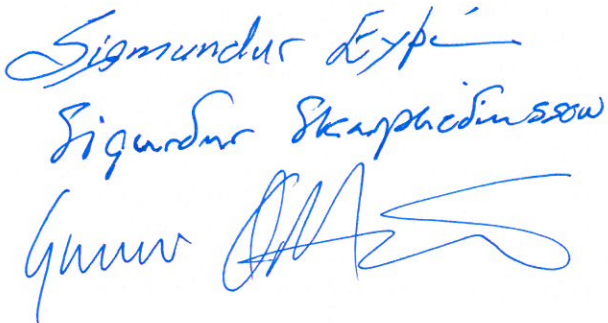 Sigmundur Eyþ
Sigurður Skarphéðinsson
Gunnar